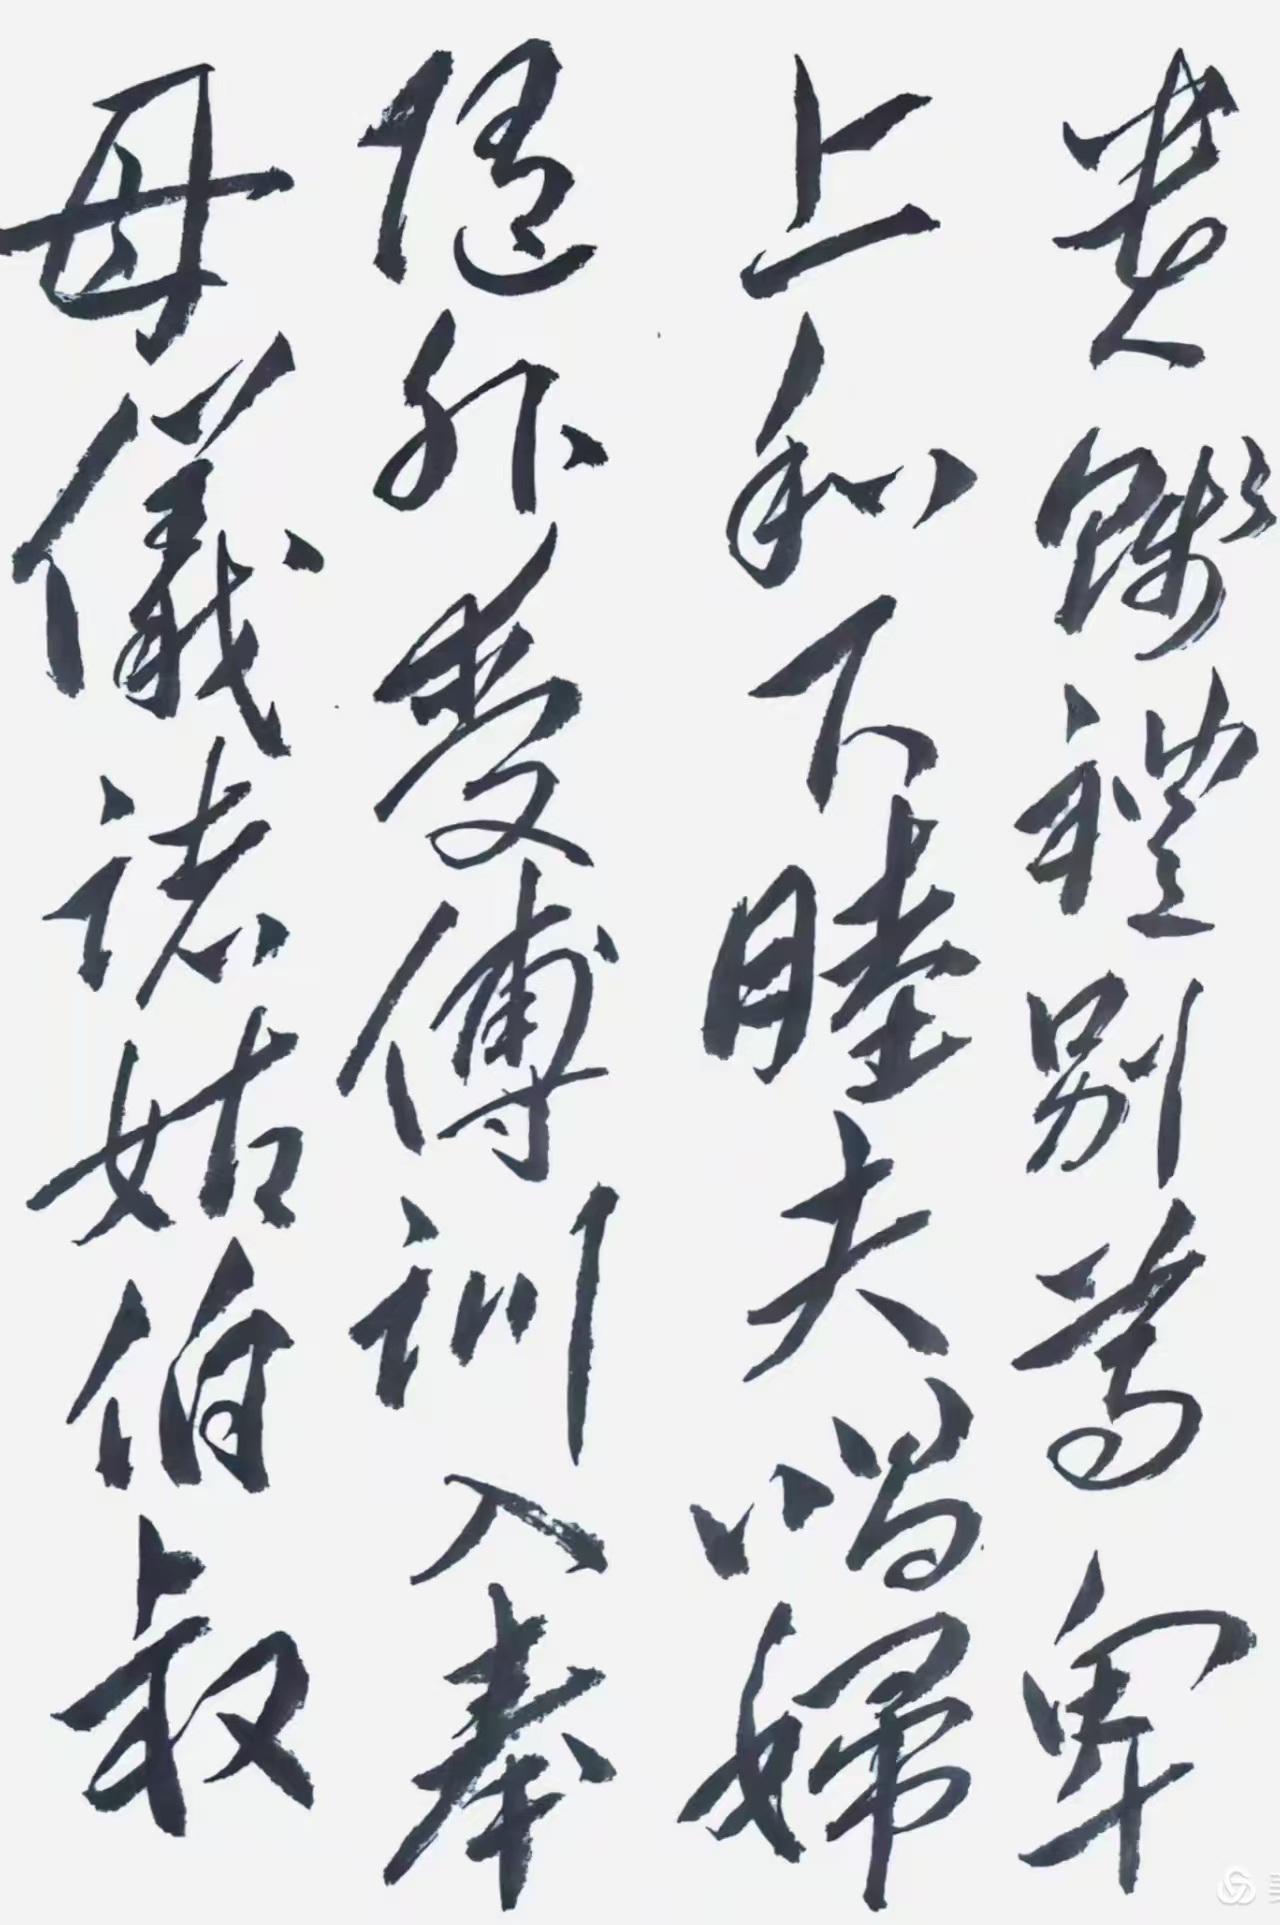 貴賤禮別尊卑
上和下睦夫唱婦
随外受傅訓入奉
母儀諸姑伯叔